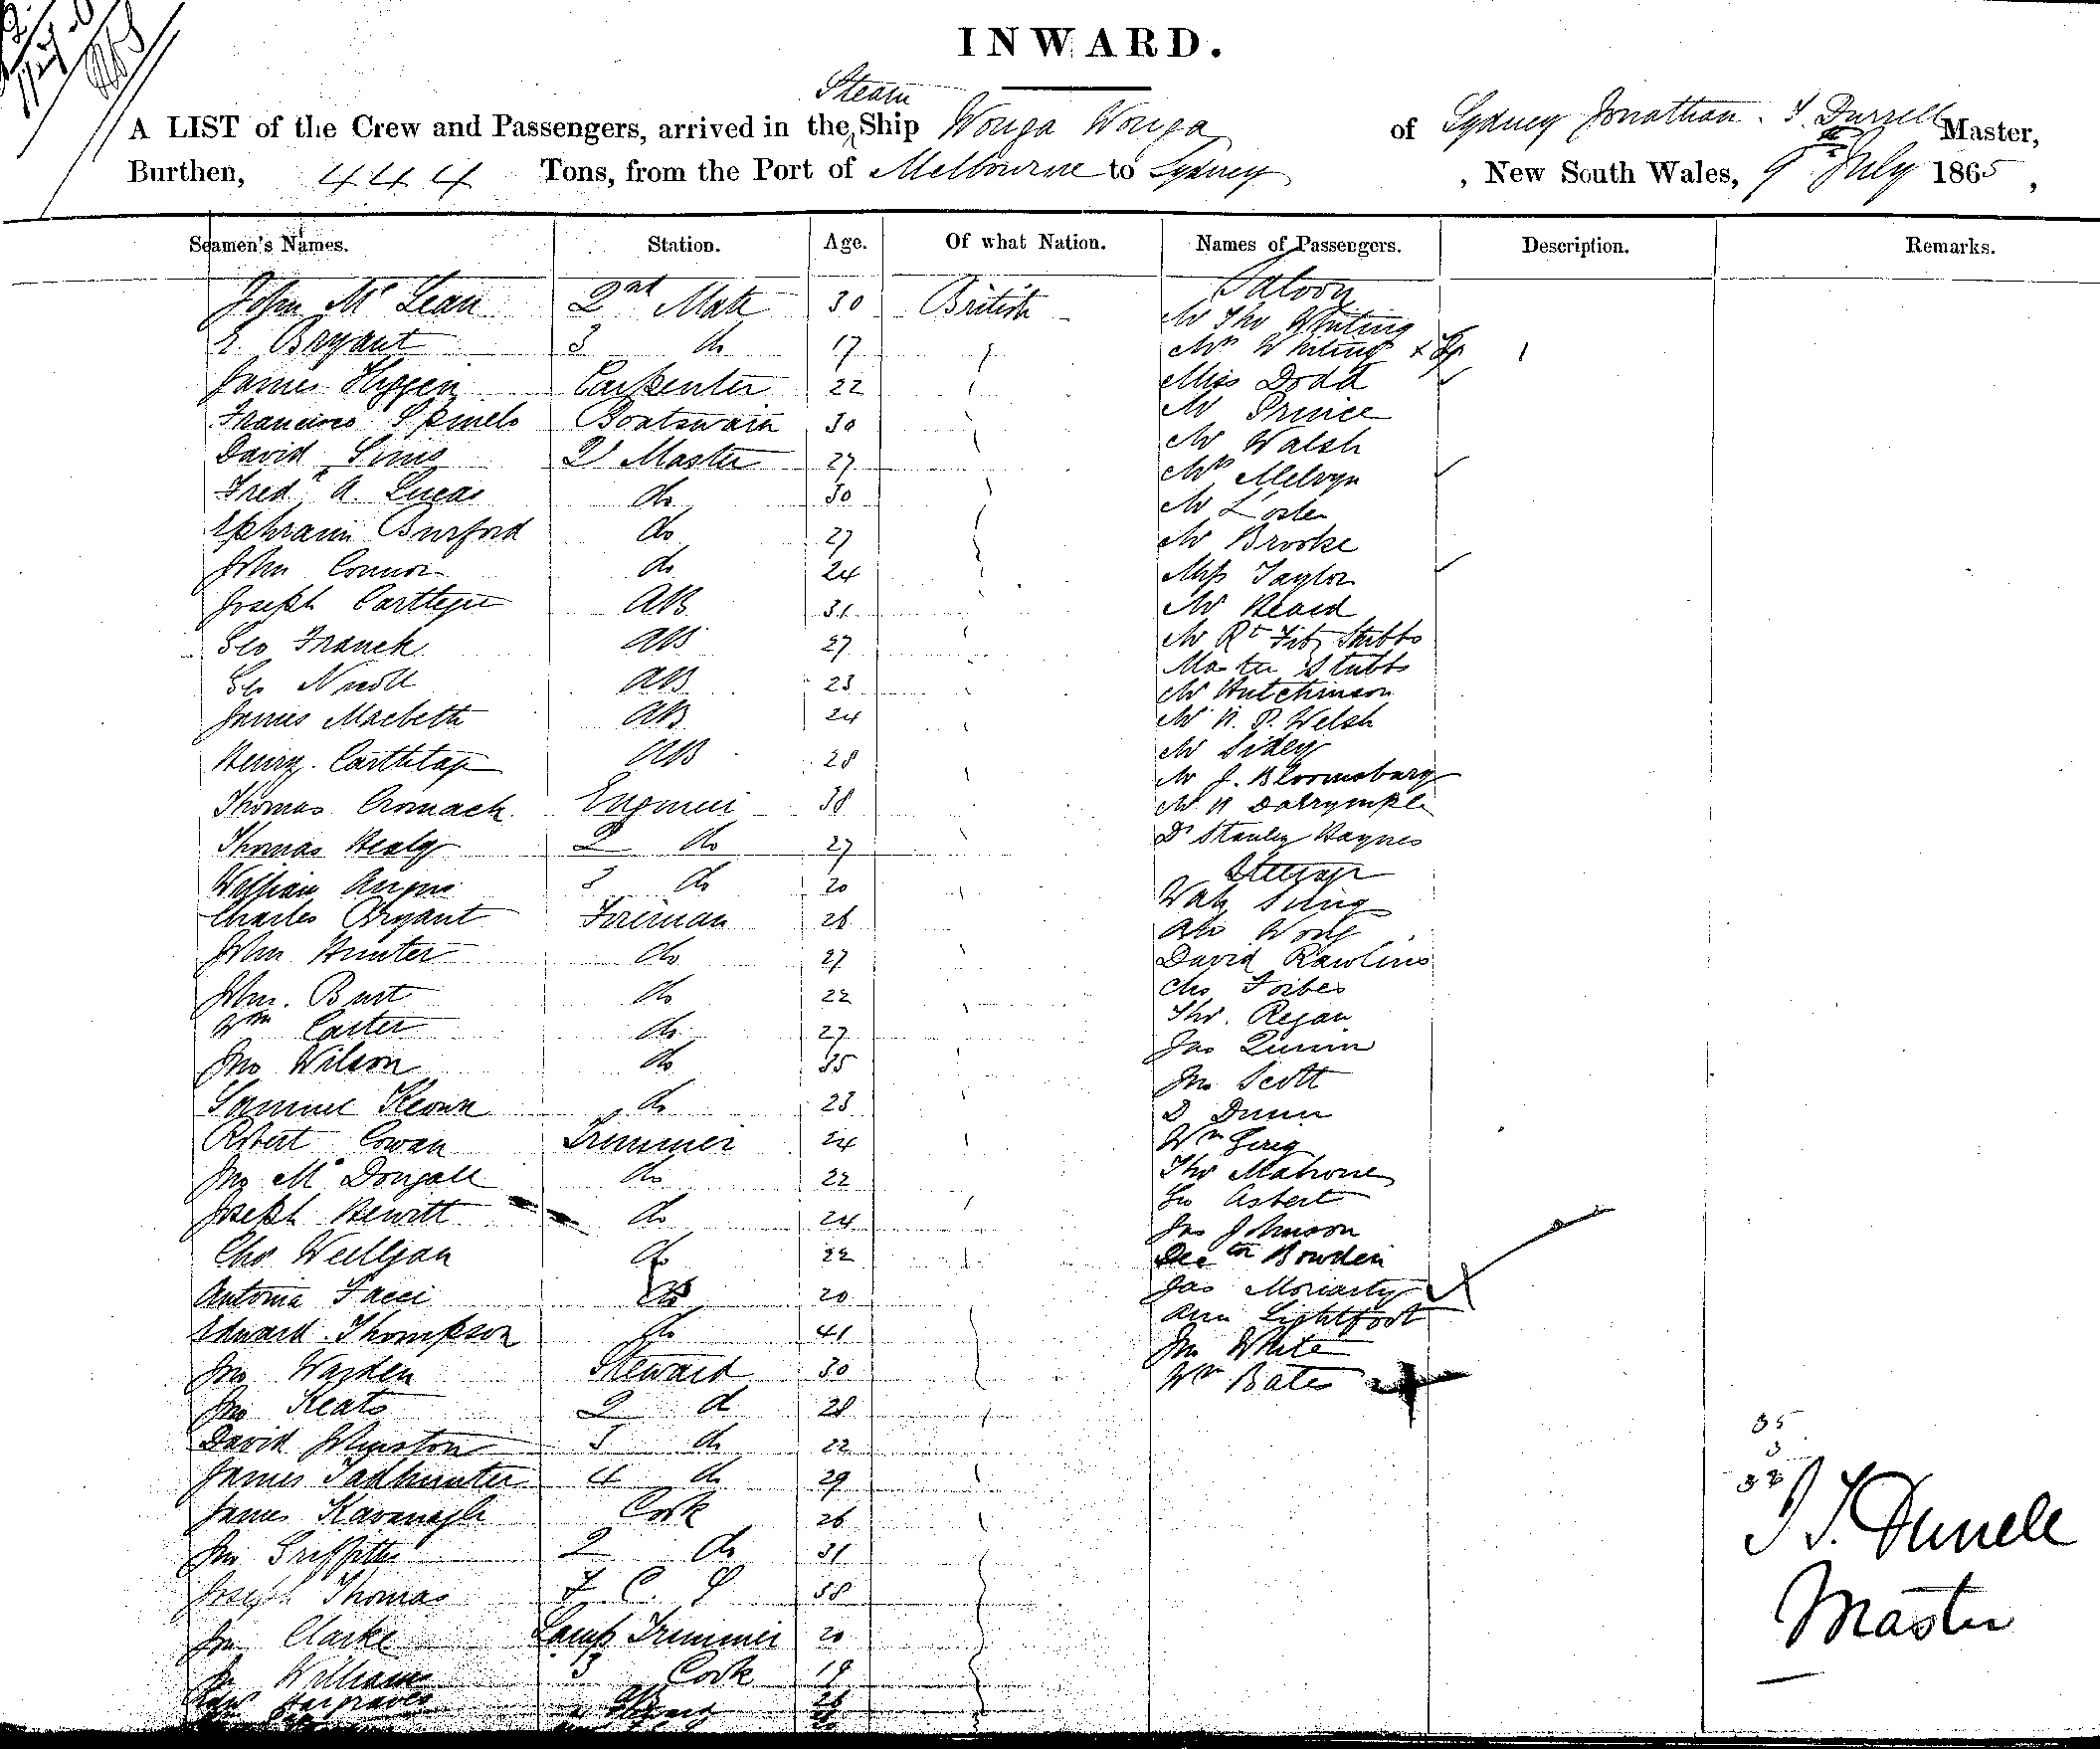 INWARD.
A LIST of the Crew and Passengers, arrived in the Steam Ship Wonga Wonga of Sydney Jonathan. T. Durrell Master,
Burthen, 444 Tons, from the Port of Melbourne to Sydney, New South Wales, 9th July 1865,
Seamen's Names. Station. Age. Of what Nation. Names of Passengers. Description. Remarks.
John Mc Lean 2nd Mate 30 British Saloon
Mr Tho Whiting
E. Bryant 3 do 17 Mrs Whiting
James Higgin Carpenter 22 Miss Dodd
Boatswain 30 Mr Prince
David Sims Qr Master 27 Mr Walsh
Mrs Melvyn
Fredk A. Lucas do 30
Ephraim Burford do 27 Mr Brooke
John Connor do 24 Miss Taylor
Joseph AB 31 Mr Heard
Geo Franck AB 27 Mr Rt Fitz Stubbs
Master Stubbs
Geo Nicoll AB 23 Mr Hutchinson
James Macbeth AB 24 Mr W. P. Welsh
Mr Sidey
Henry. AB 28 Mr J. Bloomsbury
Thomas Cromack Engineer 38 Mr W Dalrymple
Thomas Healy 2 do 27 Dr Stanley Haynes
Steerage
William Angus 3 do 20 Wah Sing
Charles Bryant Fireman 26 Ah
John Hunter do 27 David Rawlins
John. Burt do 22 Chs Forbes
Wm Carter do 27 Tho. Regan
Jas Quinn
Jno Wilson do 35 Jno Scott
Samuel Keown do 23 D Dunn
Robert Cowan Trimmer 24 Wm Greig
Jno Mc Dougall do 22 Tho Mahone
Geo Asbert
Joseph Hewitt do 24 Jas Johnson
Chs do 22 Bowden
Antonia Facci do 20 Jas Moriarty
Ann Lightfoot
Edward Thompson do 41 Jno White
Jno Warden Steward 30 Wm Bates
Jno Keats 2 d 28
David Johnston 3 do 22
James Tadhunter 4 do 29
James Kavanagh Cook 26
Jno Griffiths 2 do 31
Joseph Thomas F. C. S 38
Jno Clarke Lamp Trimmer 20
Jno Williams 3 Cook 19
Hargraves 26
35
3
38
J T. Durrell
Master